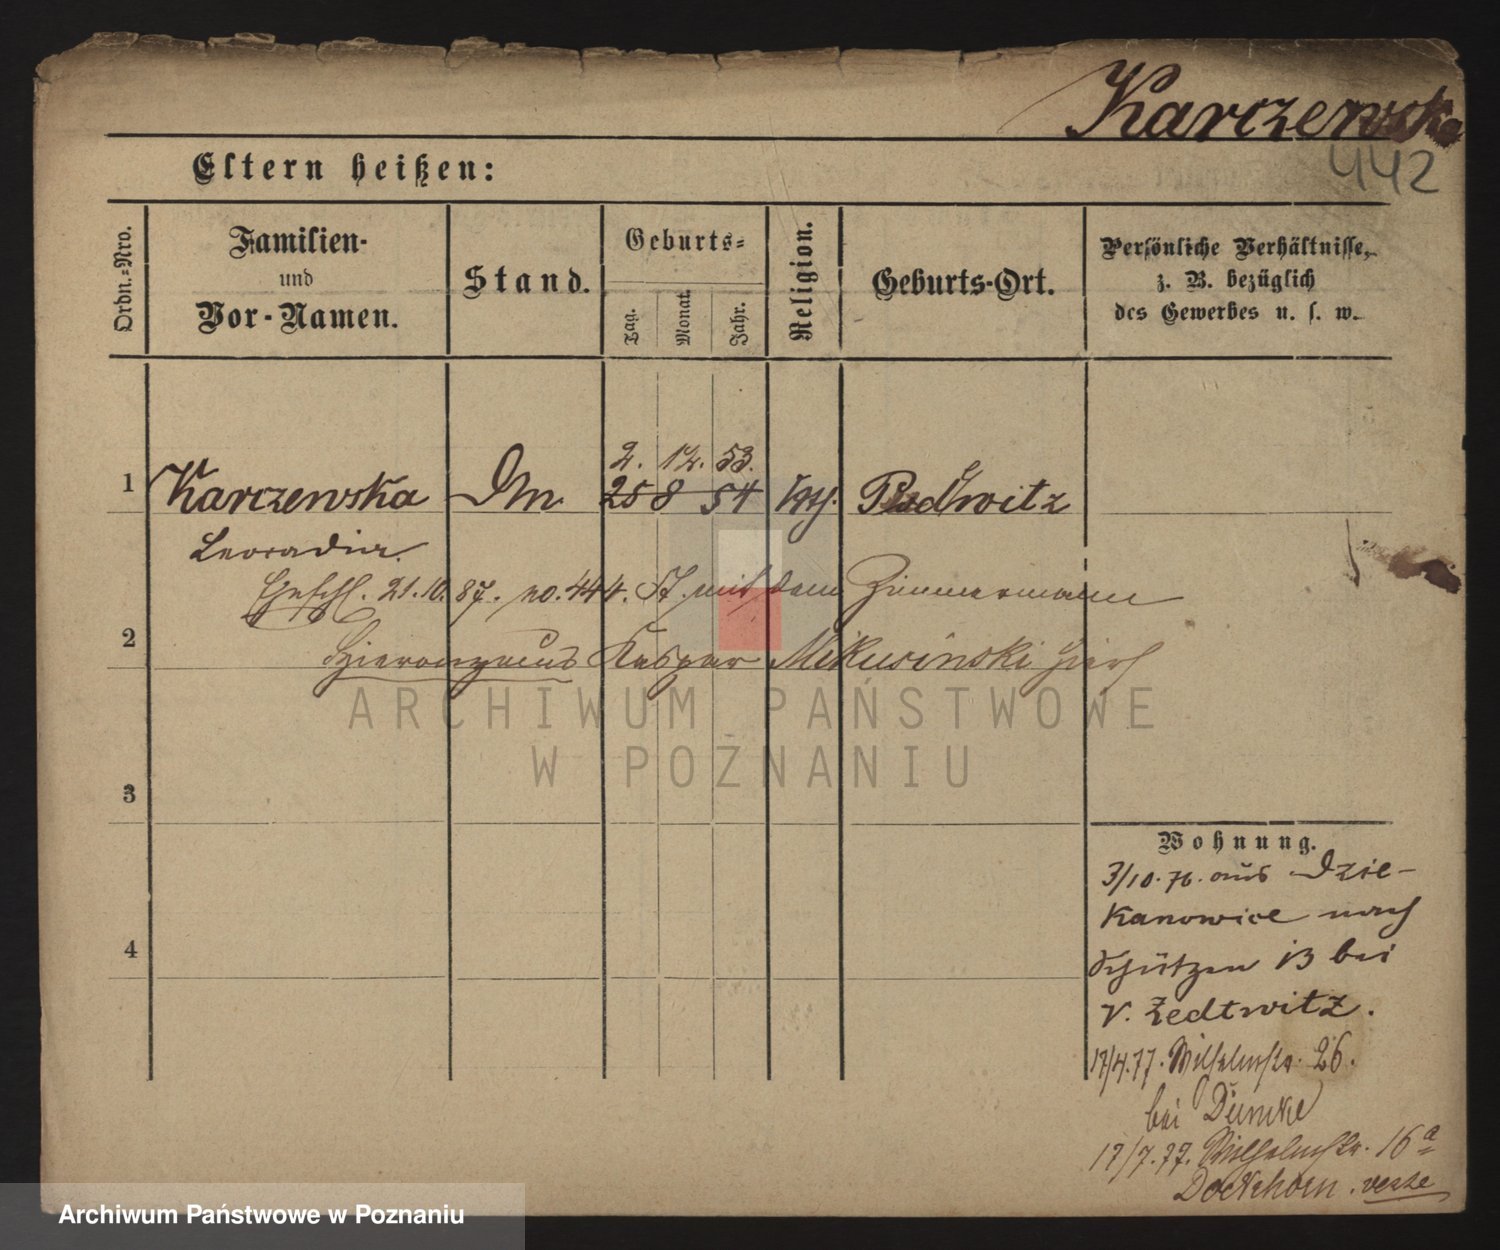 Karczewska
442
Eltern heißen:
Ordn.=Nro.
Familien-
und
Vor-Namen.
Stand.
Geburts=
Tag.
Monat.
Jahr.
Religion.
Geburts-Ort.
Persönliche Verhältnisse,
z. B. bezüglich
des Gewerbes u. s. w.
2. 12. 53.
1 Karczewska Dm 25 8 54 kath.
Leocadia
Geschl. 21.10.87. no. 444. St. mit dem Zimmermann
2
Hieronymus Kaspar Mikusinski hier
ARCHIWUM PAŃSTWOWE
W POZNANIU
3
4
Wohnung.
3/10.76. aus Dzie-
kanowice nach
Schützen 13 bei
v. Zedtwitz.
17/4.77. Wilhelmstr. 26.
bei Dümke
17/7.77. Wilhelmstr. 16a
Dockhorn. verte
Archiwum Państwowe w Poznaniu